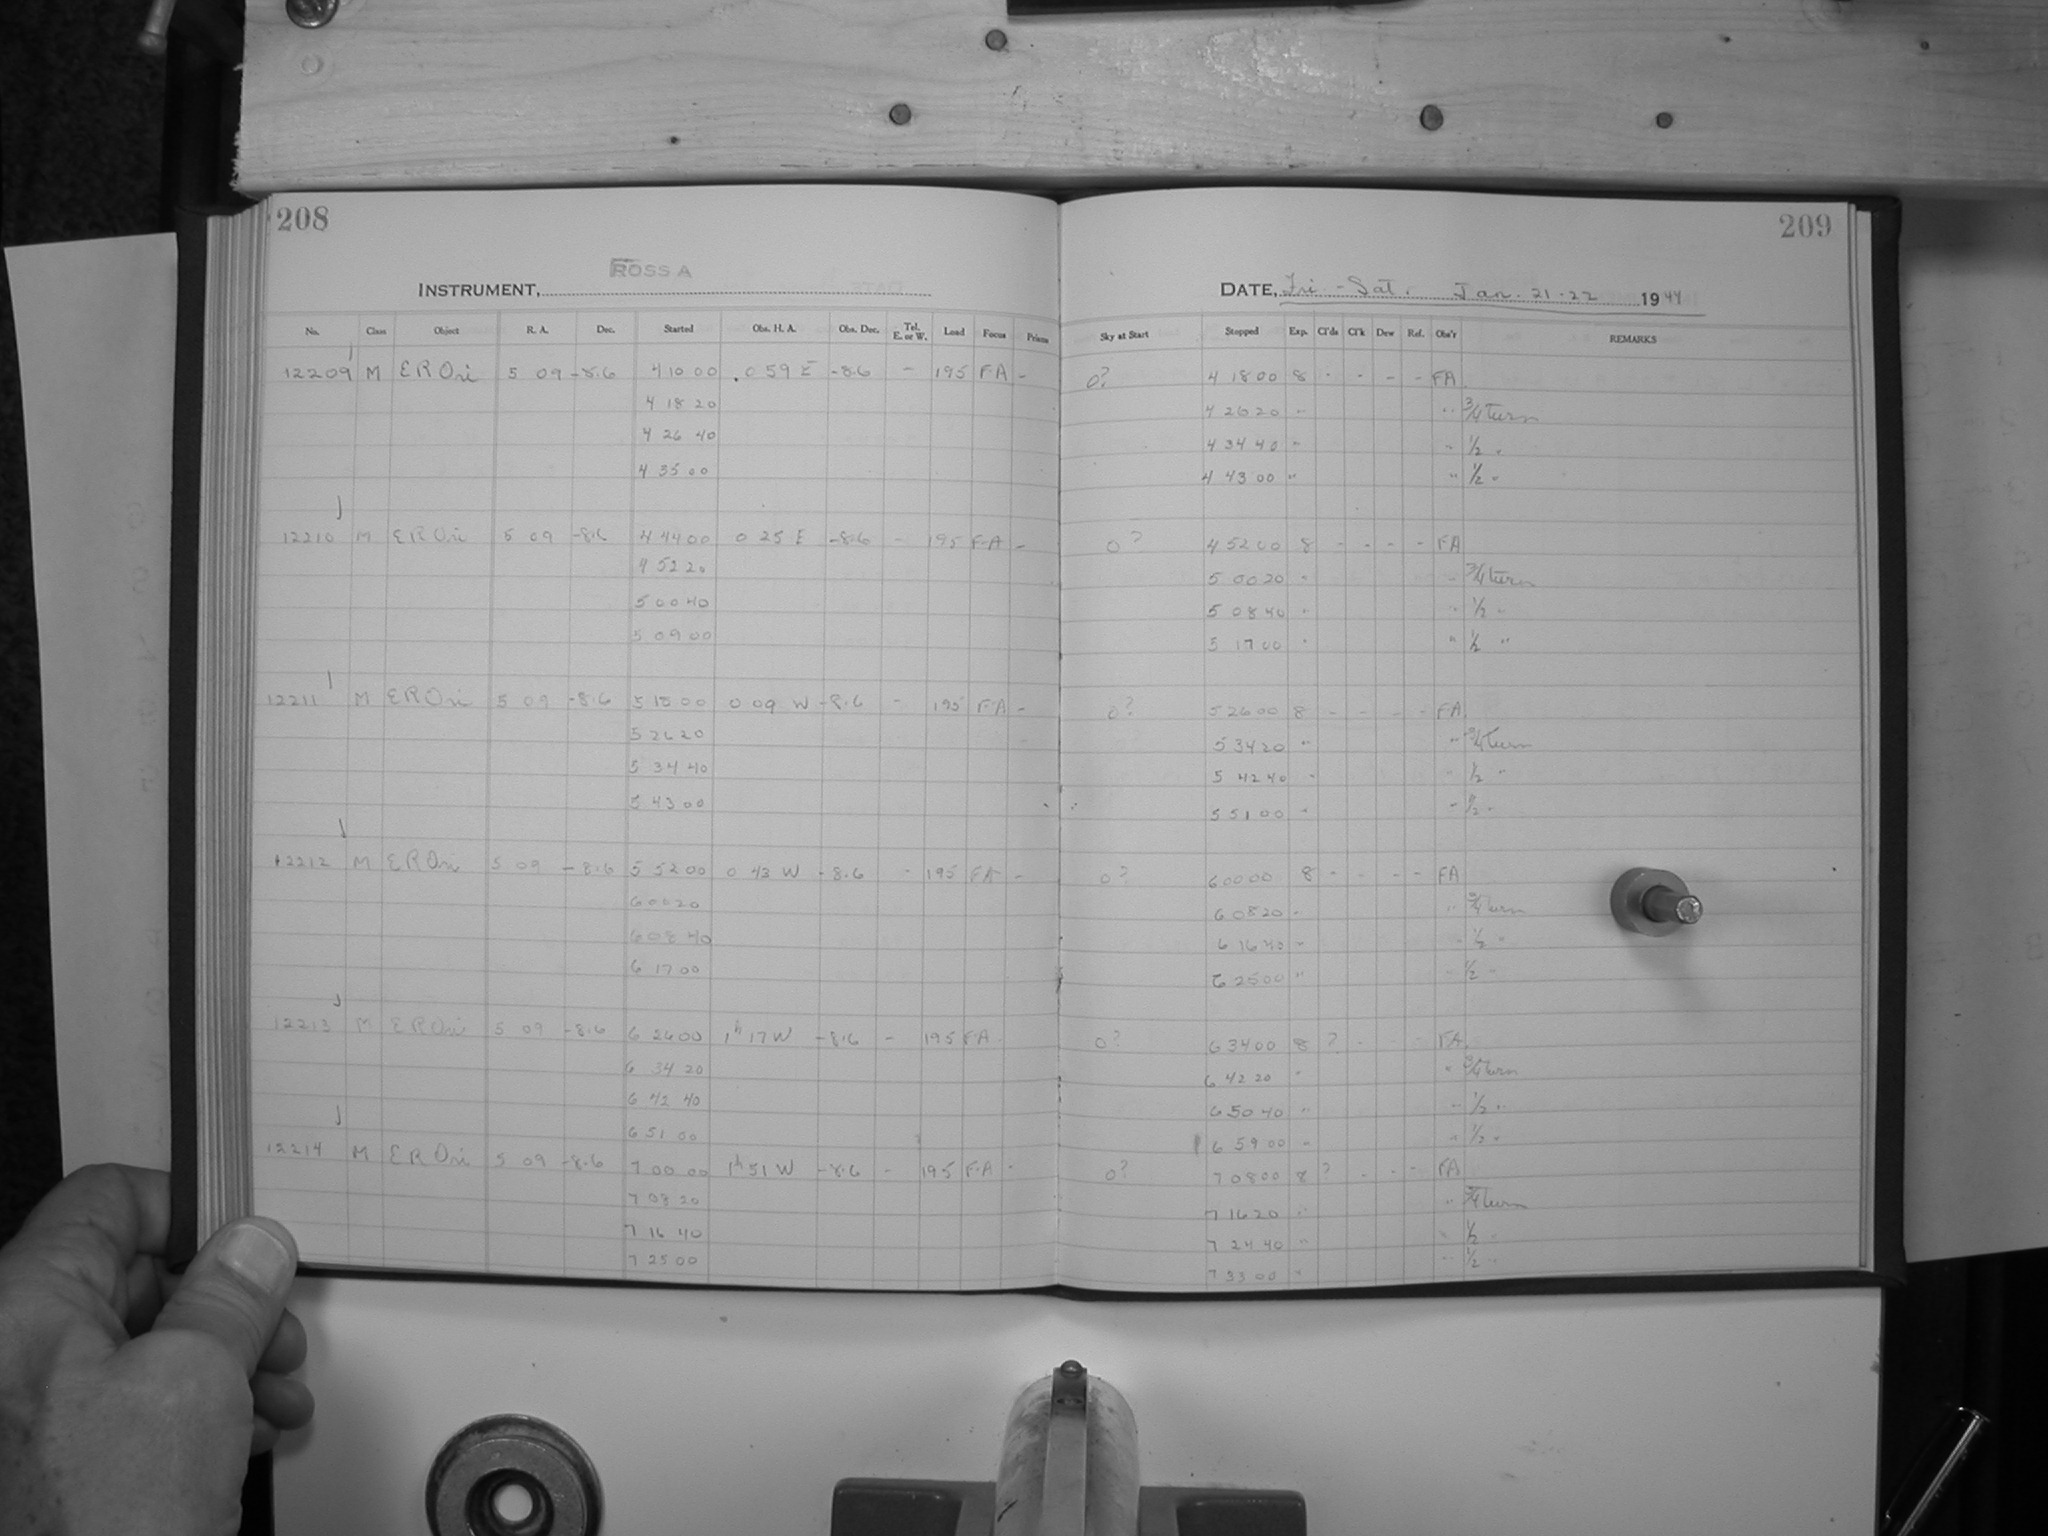 208
209
ROSS A
INSTRUMENT,
DATE, Fri - Sat. Jan. 21-22 1944
No. Class Object R. A. Dec. Started Obs. H. A. Obs. Dec. Tel. E. or W. Load Focus Prisms Sky at Start Stopped Exp. Cl'ds Cl'k Dew Ref. Obs'r REMARKS
12209 M ER Ori 5 09 -8.6 4 10 00 0 59 E -8.6 - 195 FA - 0? 4 18 00 8 - - - - FA
4 18 20 4 26 20 " " 3/4 turn
4 26 40 4 34 40 " " 1/2 "
4 35 00 4 43 00 " " 1/2 "
12210 M ER Ori 5 09 -8.6 4 44 00 0 25 E -8.6 - 195 FA - 0? 4 52 00 8 - - - - FA
4 52 20 5 00 20 " " 3/4 turn
5 00 40 5 08 40 " " 1/2 "
5 09 00 5 17 00 " " 1/2 "
12211 M ER Ori 5 09 -8.6 5 18 00 0 09 W -8.6 - 195 FA - 0? 5 26 00 8 - - - - FA
5 26 20 5 34 20 " " 3/4 turn
5 34 40 5 42 40 " " 1/2 "
5 43 00 5 51 00 " " 1/2 "
12212 M ER Ori 5 09 -8.6 5 52 00 0 43 W -8.6 - 195 FA - 0? 6 00 00 8 - - - - FA
6 00 20 6 08 20 " " 3/4 turn
6 08 40 6 16 40 " " 1/2 "
6 17 00 6 25 00 " " 1/2 "
12213 M ER Ori 5 09 -8.6 6 26 00 1h 17 W -8.6 - 195 FA 0? 6 34 00 8 ? - - - FA
6 34 20 6 42 20 " " 3/4 turn
6 42 40 6 50 40 " " 1/2 "
6 51 00 6 59 00 " " 1/2 "
12214 M ER Ori 5 09 -8.6 7 00 00 1h 51 W -8.6 - 195 FA - 0? 7 08 00 8 ? - - - FA
7 08 20 7 16 20 " " 3/4 turn
7 16 40 7 24 40 " 1/2 "
7 25 00 7 33 00 " " 1/2 "